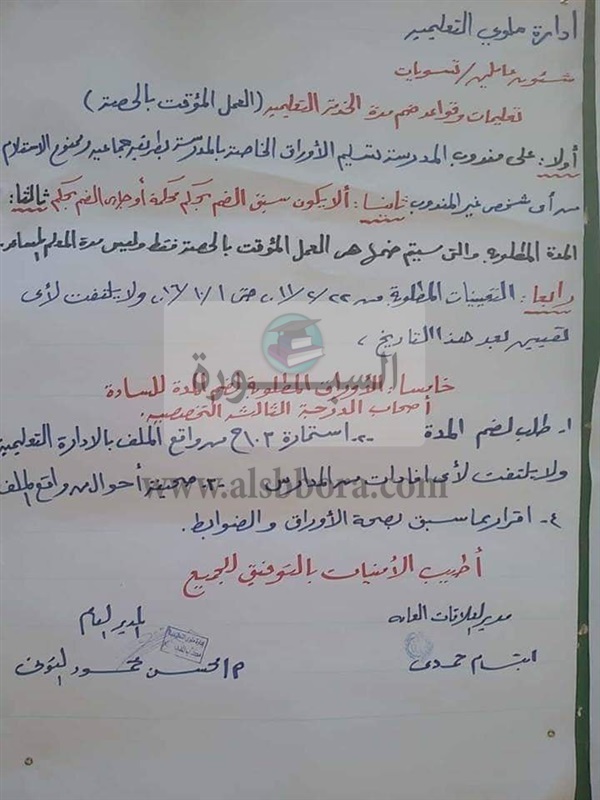 إدارة ملوي التعليمية
شئون عاملين / تسويات
تعليمات وقواعد ضم مدة الخدمة التعليمية (العمل المؤقت بالحصة)
أولا: على مندوب المدرسة تسليم الأوراق الخاصة بالمدرسة بطريقة جماعية وممنوع الاستلام
من أى شخص غير المندوب ثانيا: ألا يكون سبق الضم بحكم محكمة أو جارى الضم بحكم ثالثا:
المدة المطلوبة والتى سيتم ضمها هى العمل المؤقت بالحصة فقط وليس مدة المعلم المساعد
رابعا: التعيينات المطلوبة من ٢٠١١/٢/٢٢ حتى ٢٠١٦/١٠/١ ولا يلتفت لأى
تعيين بعد هذا التاريخ
السبورة
خامسا: الأوراق المطلوبة لضم المدة للسادة
أصحاب الدرجة الثالثة التخصصية:
١- طلب لضم المدة ٢- استمارة ١٠٣ ح من واقع الملف بالادارة التعليمية
ولا يلتفت لأى افادات من المدارس ٣- صحيفة أحوال من واقع الملف
www.alsbbora.com
٤- اقرار بما سبق بصحة الأوراق والضوابط.
أطيب الأمنيات بالتوفيق للجميع
مدير العلاقات العامة المدير العام
ابتسام حمدى م/ الحسن محمود